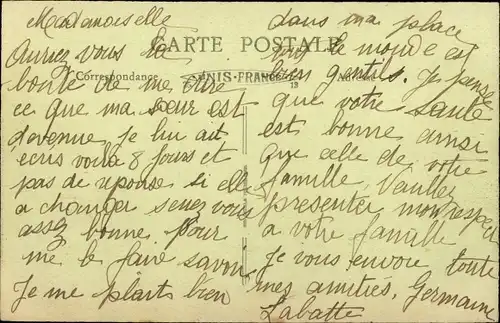 Mademoiselle
CARTE POSTALE
Correspondance
UNIS-FRANCE
13
Auriez vous la
bonté de me dire
ce que ma sœur est
devenue je lui ait
ecris voila 8 jours et
pas de reponse si elle
a changer serez vous
assez bonne pour
me le faire savoir
Je me plais bien
dans ma place
le monde est
bien gentils. Je pense
que votre santé
est bonne ainsi
que celle de votre
famille. Veuillez
presenter mon respect
a votre famille
Je vous envoie toute
mes amitiés. Germaine
Labatte